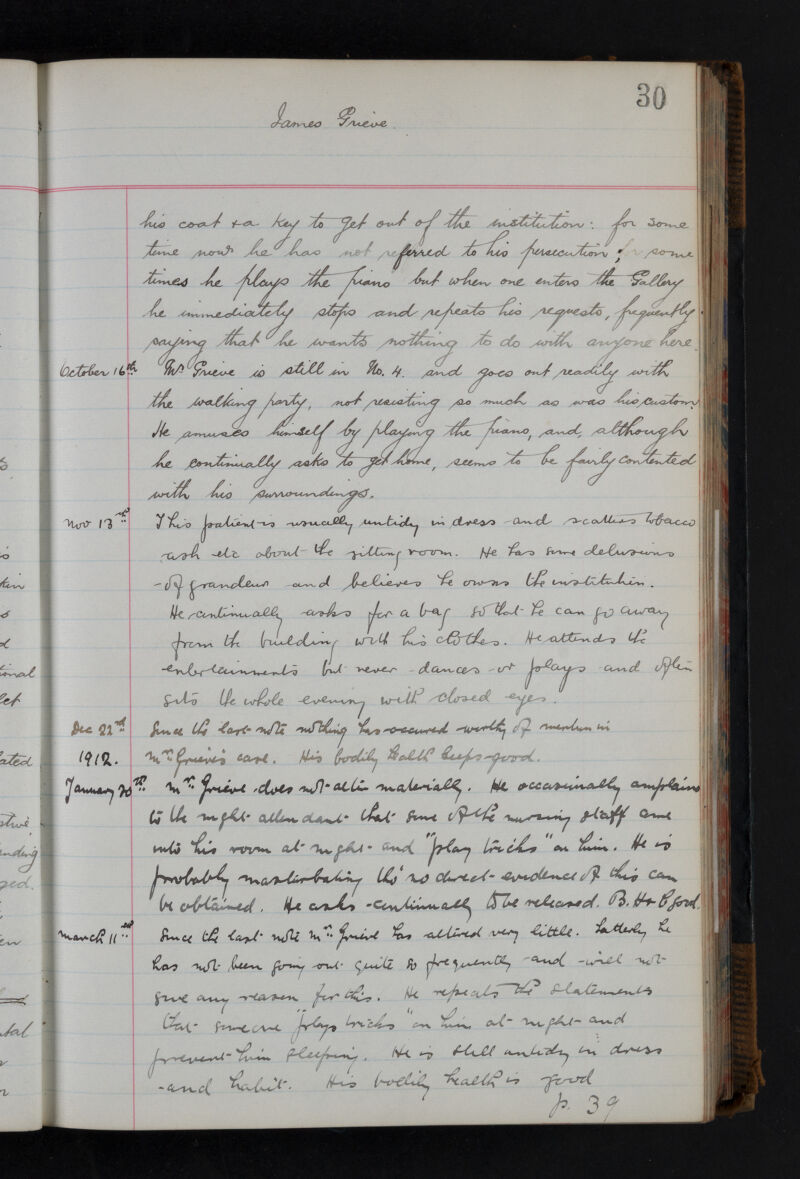 30
James Grieve.
his coat & a key to get out of the institution: for some
time now he has not referred to his persecution; some
times he plays the piano but when one enters the Gallery
he immediately stops and repeats his requests, frequently
saying that he wants nothing to do with anyone here.
October 16th Mr Grieve is still in No. 4. and goes out readily with
the walking party, not resisting so much as was his custom.
He amuses himself by playing the piano, and, although
he continually asks to get home, seems to be fairly contented
with his surroundings.
Nov 13th This patient is usually untidy in dress and scatters tobacco
ash etc about the sitting room. He has some delusions
of grandeur and believes he owns the institution.
He continually asks for a bag so that he can go away
from the building with his clothes. He attends the
entertainments but never dances or plays and often
sits the whole evening with closed eyes.
Dec 22nd Since the last note nothing has occured worthy of mention in
1912. Mr Grieve's case. His bodily health keeps good.
January 20th Mr Grieve does not alter materially. He occasionally complains
to the night attendant that some of the nursing staff come
into his room at night and "play tricks" on him. He is
probably masturbating tho' no direct evidence of this can
be obtained. He asks continually to be released. B. H. good.
March 11th Since the last note Mr Grieve has altered very little. Latterly he
has not been going out quite so frequently and will not
give any reason for this. He repeats the statements
that someone "plays tricks" on him at night and
prevent him sleeping. He is still untidy in dress
and habit. His bodily health is good
p. 39